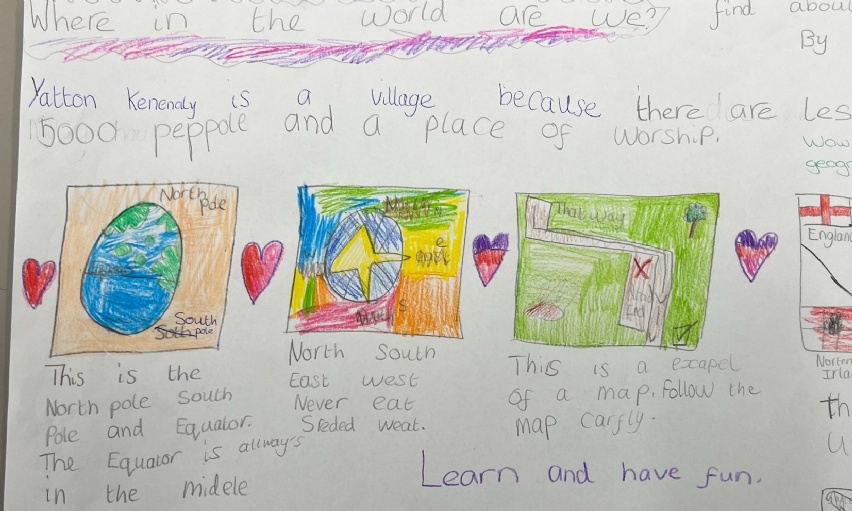 Where in the world are we? find abou
By
Yatton Kenenaly is a village because there are les
5000 peppole and a place of worship.
Wow
geogr
North
pole
South
pole
That way
Dead
End
England
Norten
Irla
This is the
North pole South
Pole and Equator.
The Equator is allways
in the midele
North South
East west
Never eat
Sreded weat.
This is a excapel
of a map. follow the
map carfly.
th
u
Learn and have fun.